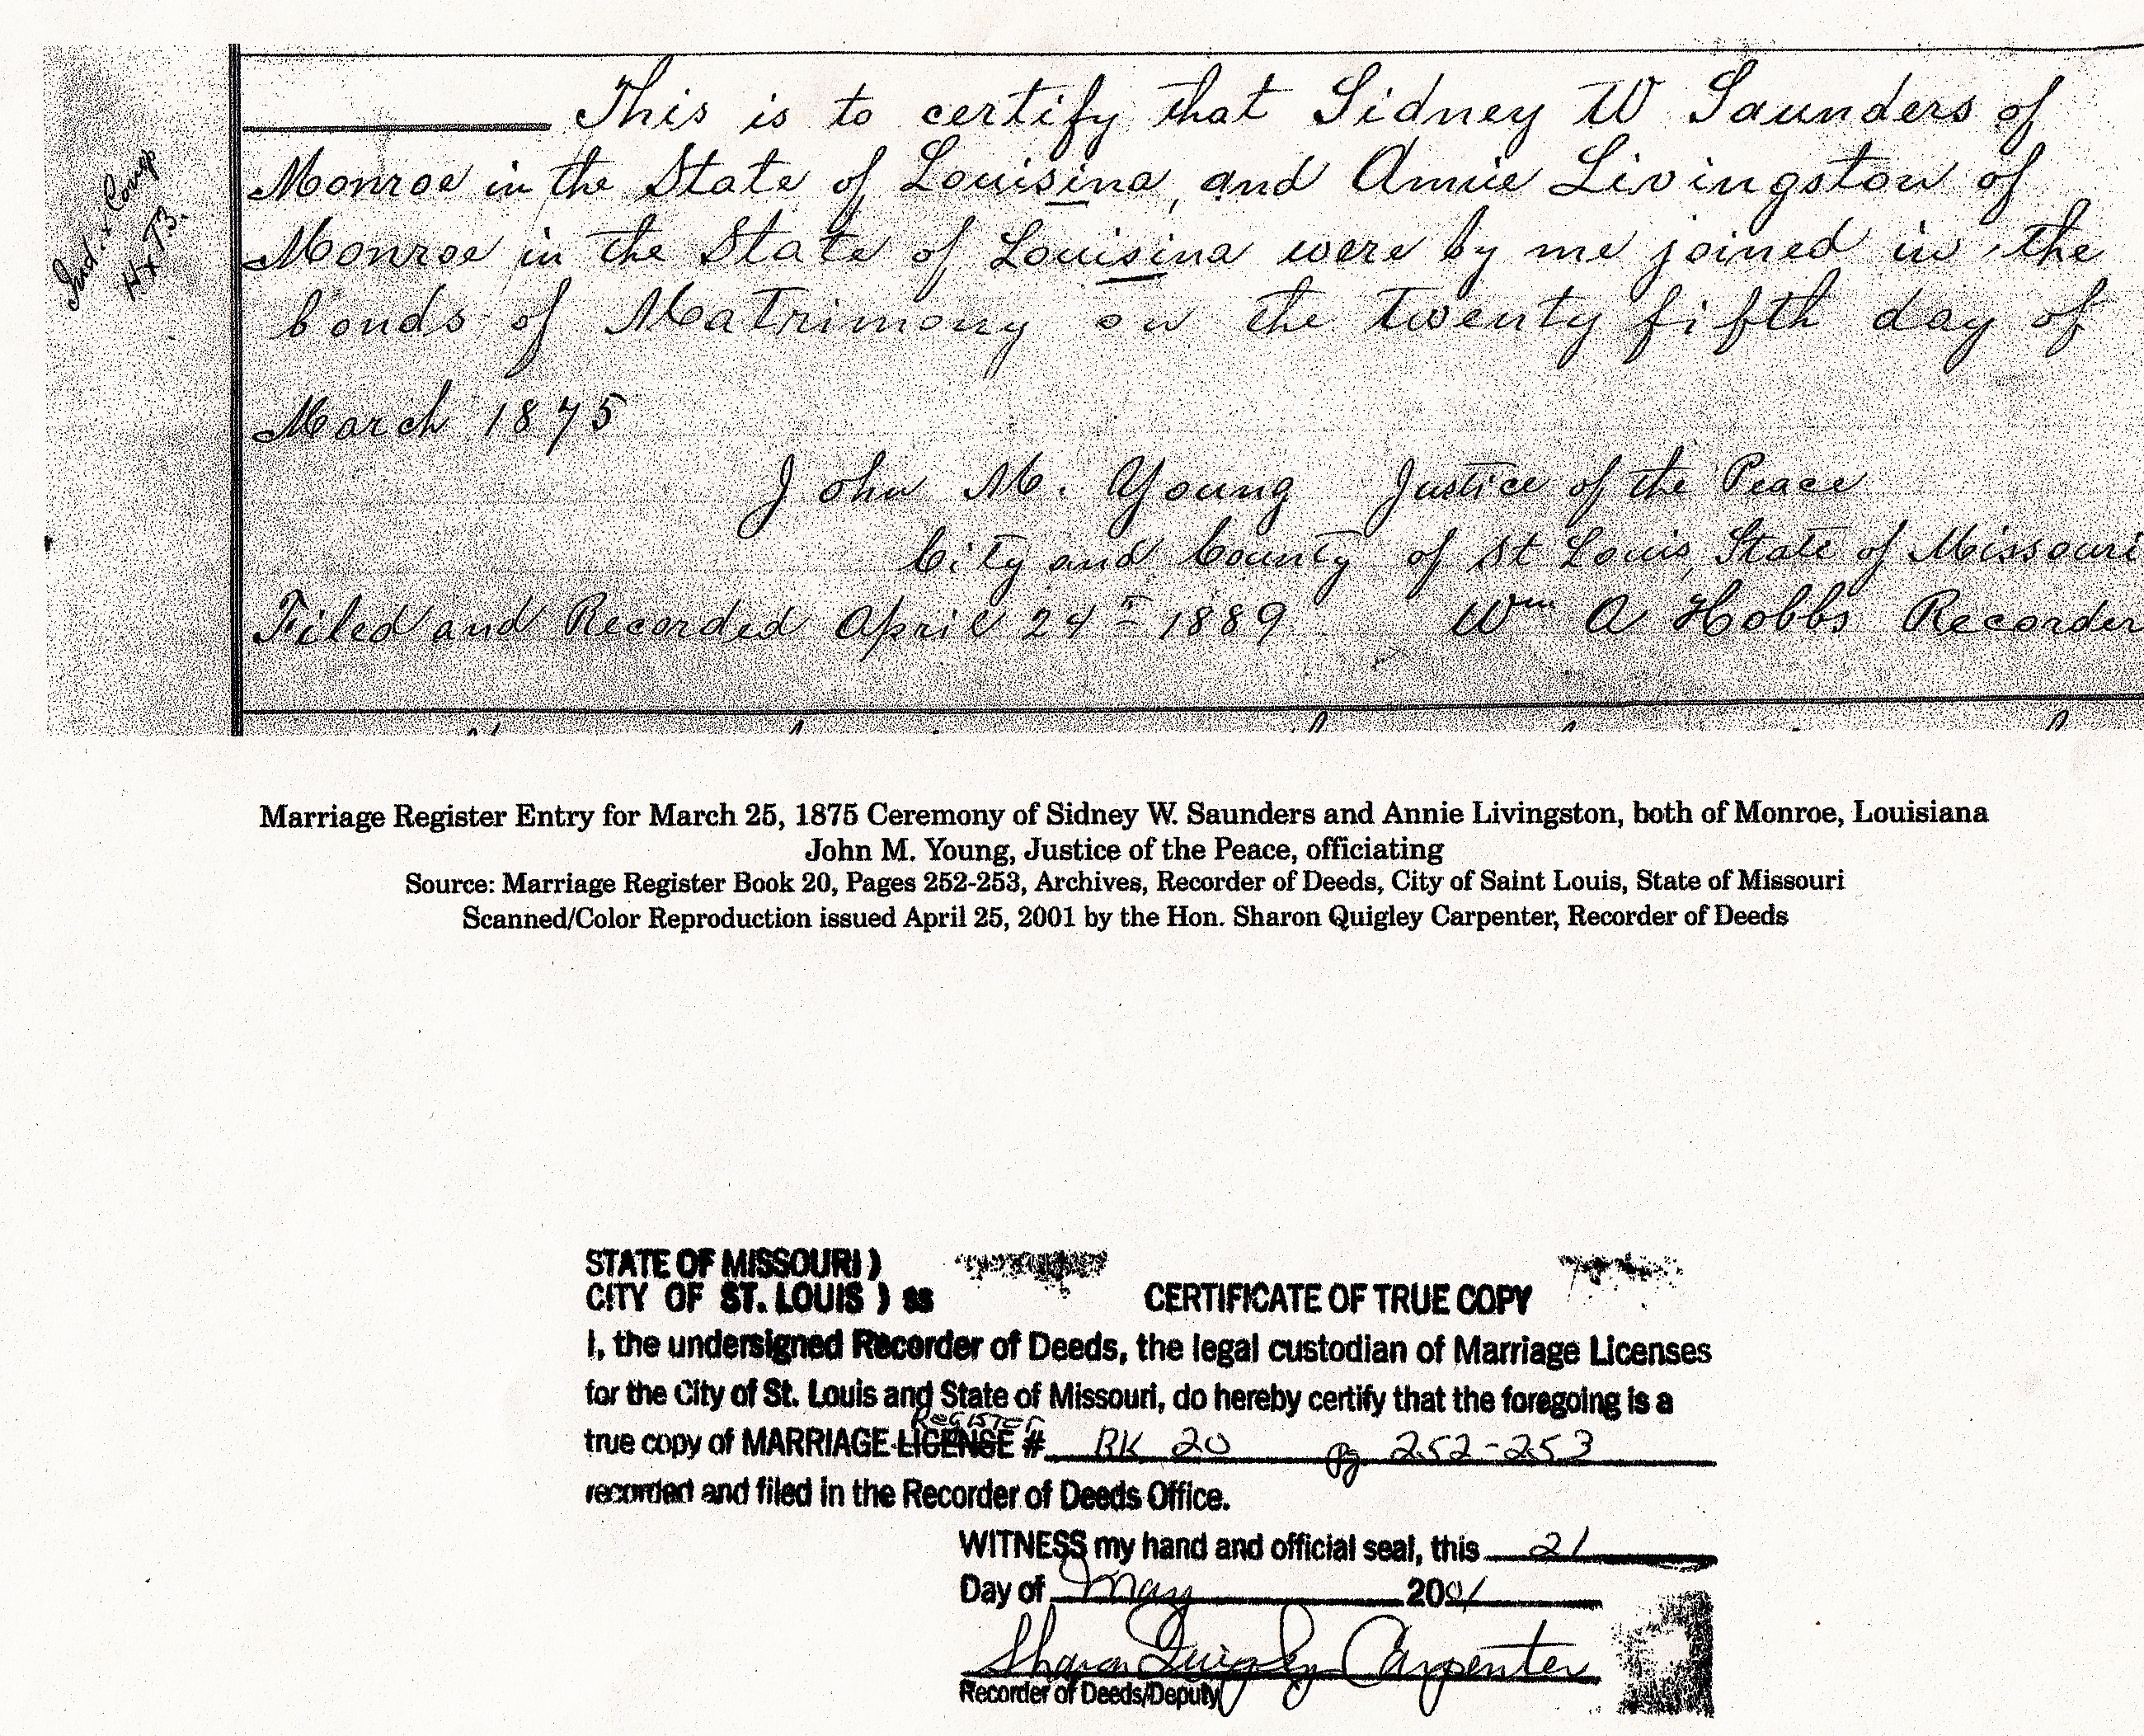 This is to certify that Sidney W Saunders of
Monroe in the State of Louisina, and Annie Livingston of
Monroe in the State of Louisina were by me joined in the
bonds of Matrimony on the twenty fifth day of
March 1875
John M. Young Justice of the Peace
City and County of St Louis, State of Missouri
Filed and Recorded April 24th 1889 Wm A Hobbs Recorder
Ind. & Comp
H & T.B.
Marriage Register Entry for March 25, 1875 Ceremony of Sidney W. Saunders and Annie Livingston, both of Monroe, Louisiana
John M. Young, Justice of the Peace, officiating
Source: Marriage Register Book 20, Pages 252-253, Archives, Recorder of Deeds, City of Saint Louis, State of Missouri
Scanned/Color Reproduction issued April 25, 2001 by the Hon. Sharon Quigley Carpenter, Recorder of Deeds
STATE OF MISSOURI )
CITY OF ST. LOUIS ) ss CERTIFICATE OF TRUE COPY
I, the undersigned Recorder of Deeds, the legal custodian of Marriage Licenses
for the City of St. Louis and State of Missouri, do hereby certify that the foregoing is a
REGISTER
true copy of MARRIAGE LICENSE # BK 20 pg. 252-253
recorded and filed in the Recorder of Deeds Office.
WITNESS my hand and official seal, this 21
Day of May 2001
Sharon Quigley Carpenter
Recorder of Deeds/Deputy